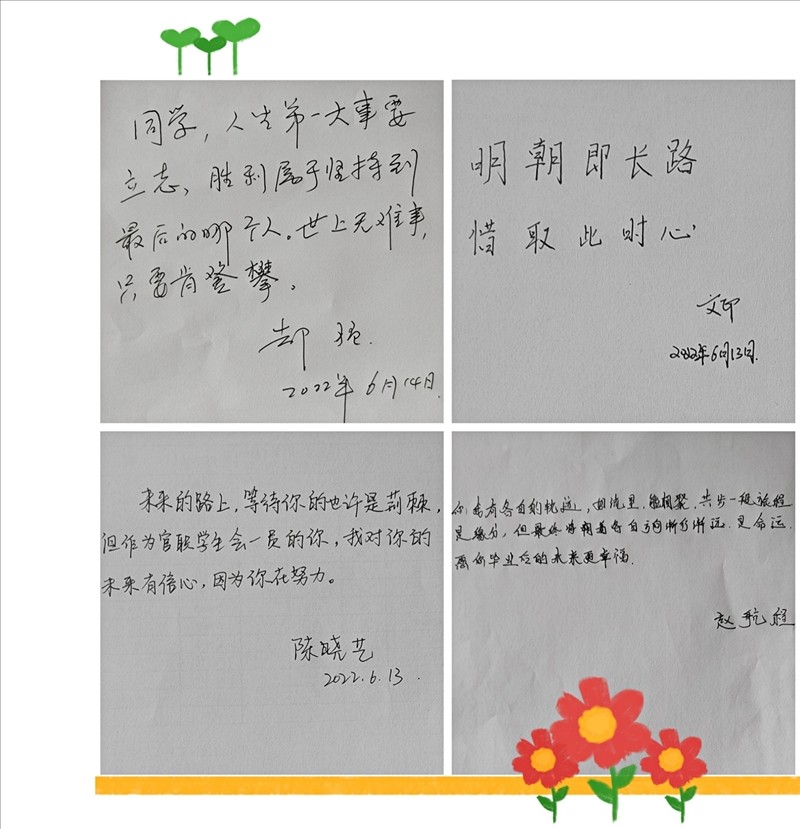 同学，人生第一大事要
立志、胜利属于坚持到
最后的哪个人。世上无难事，
只要肯登攀。
2022年6月14日.
明朝即长路
惜取此时心
文印
2022年6月13日.
未来的路上，等待你的也许是荊棘，
但作为官职学生会一员的你，我对你的
未来有信心，因为你在努力。
陈晓艺
2022.6.13.
们都有各自的轨迹，相聚，共步一程旅程
是缘分，但最终将朝着各自方向渐行渐远.是命运.
愿你毕业后的未来更幸福.
赵航程